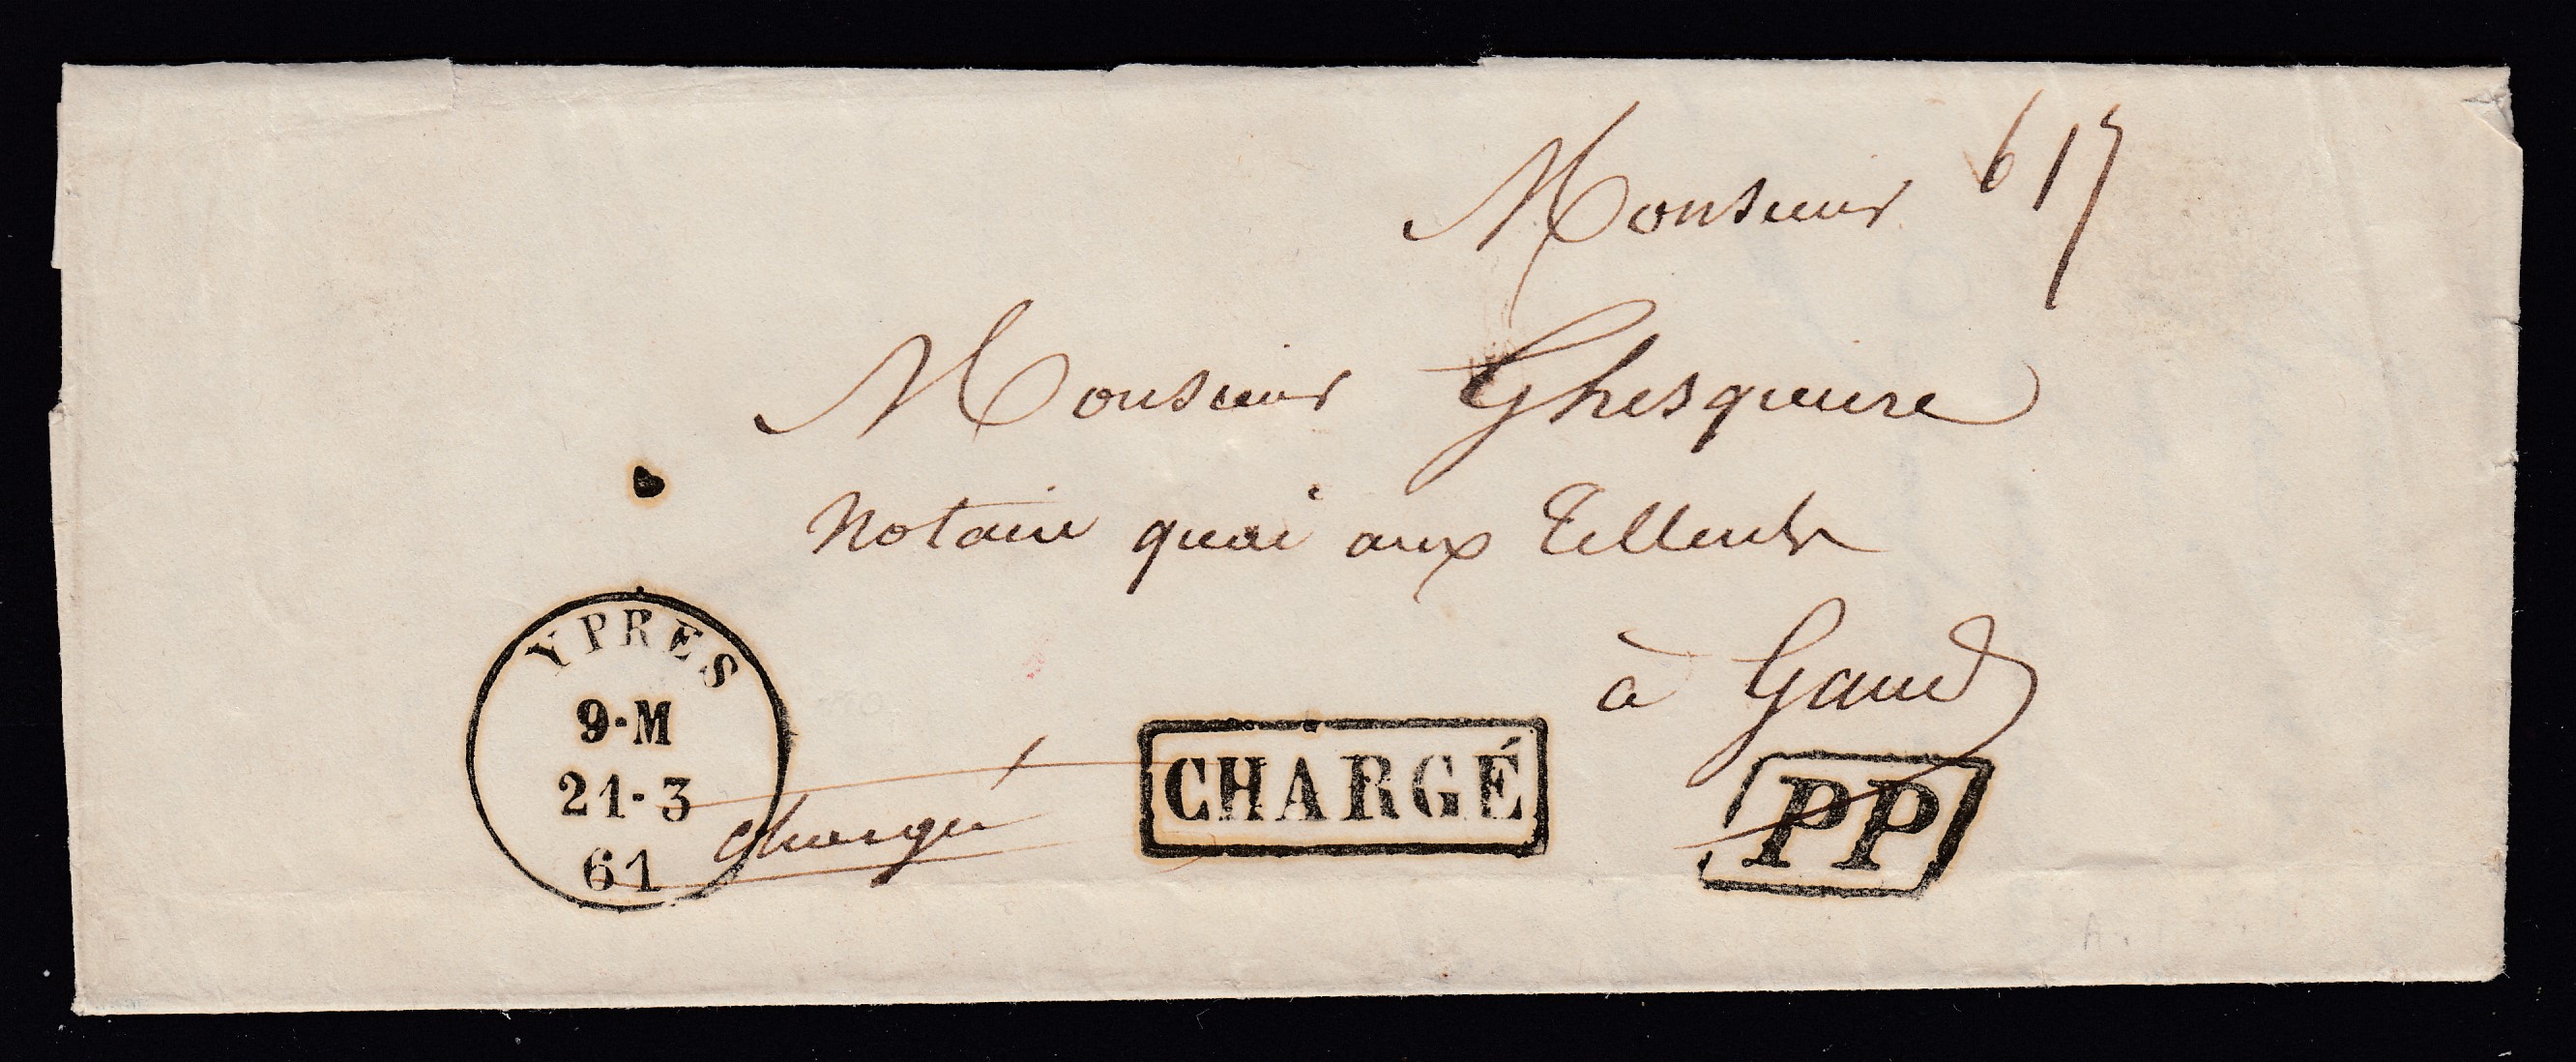 Monsieur 617
Monsieur Ghesquiere
Notaire quai aux Tilleuls
à Gand
YPRES
9·M
21-3
61
chargé
CHARGÉ
PP